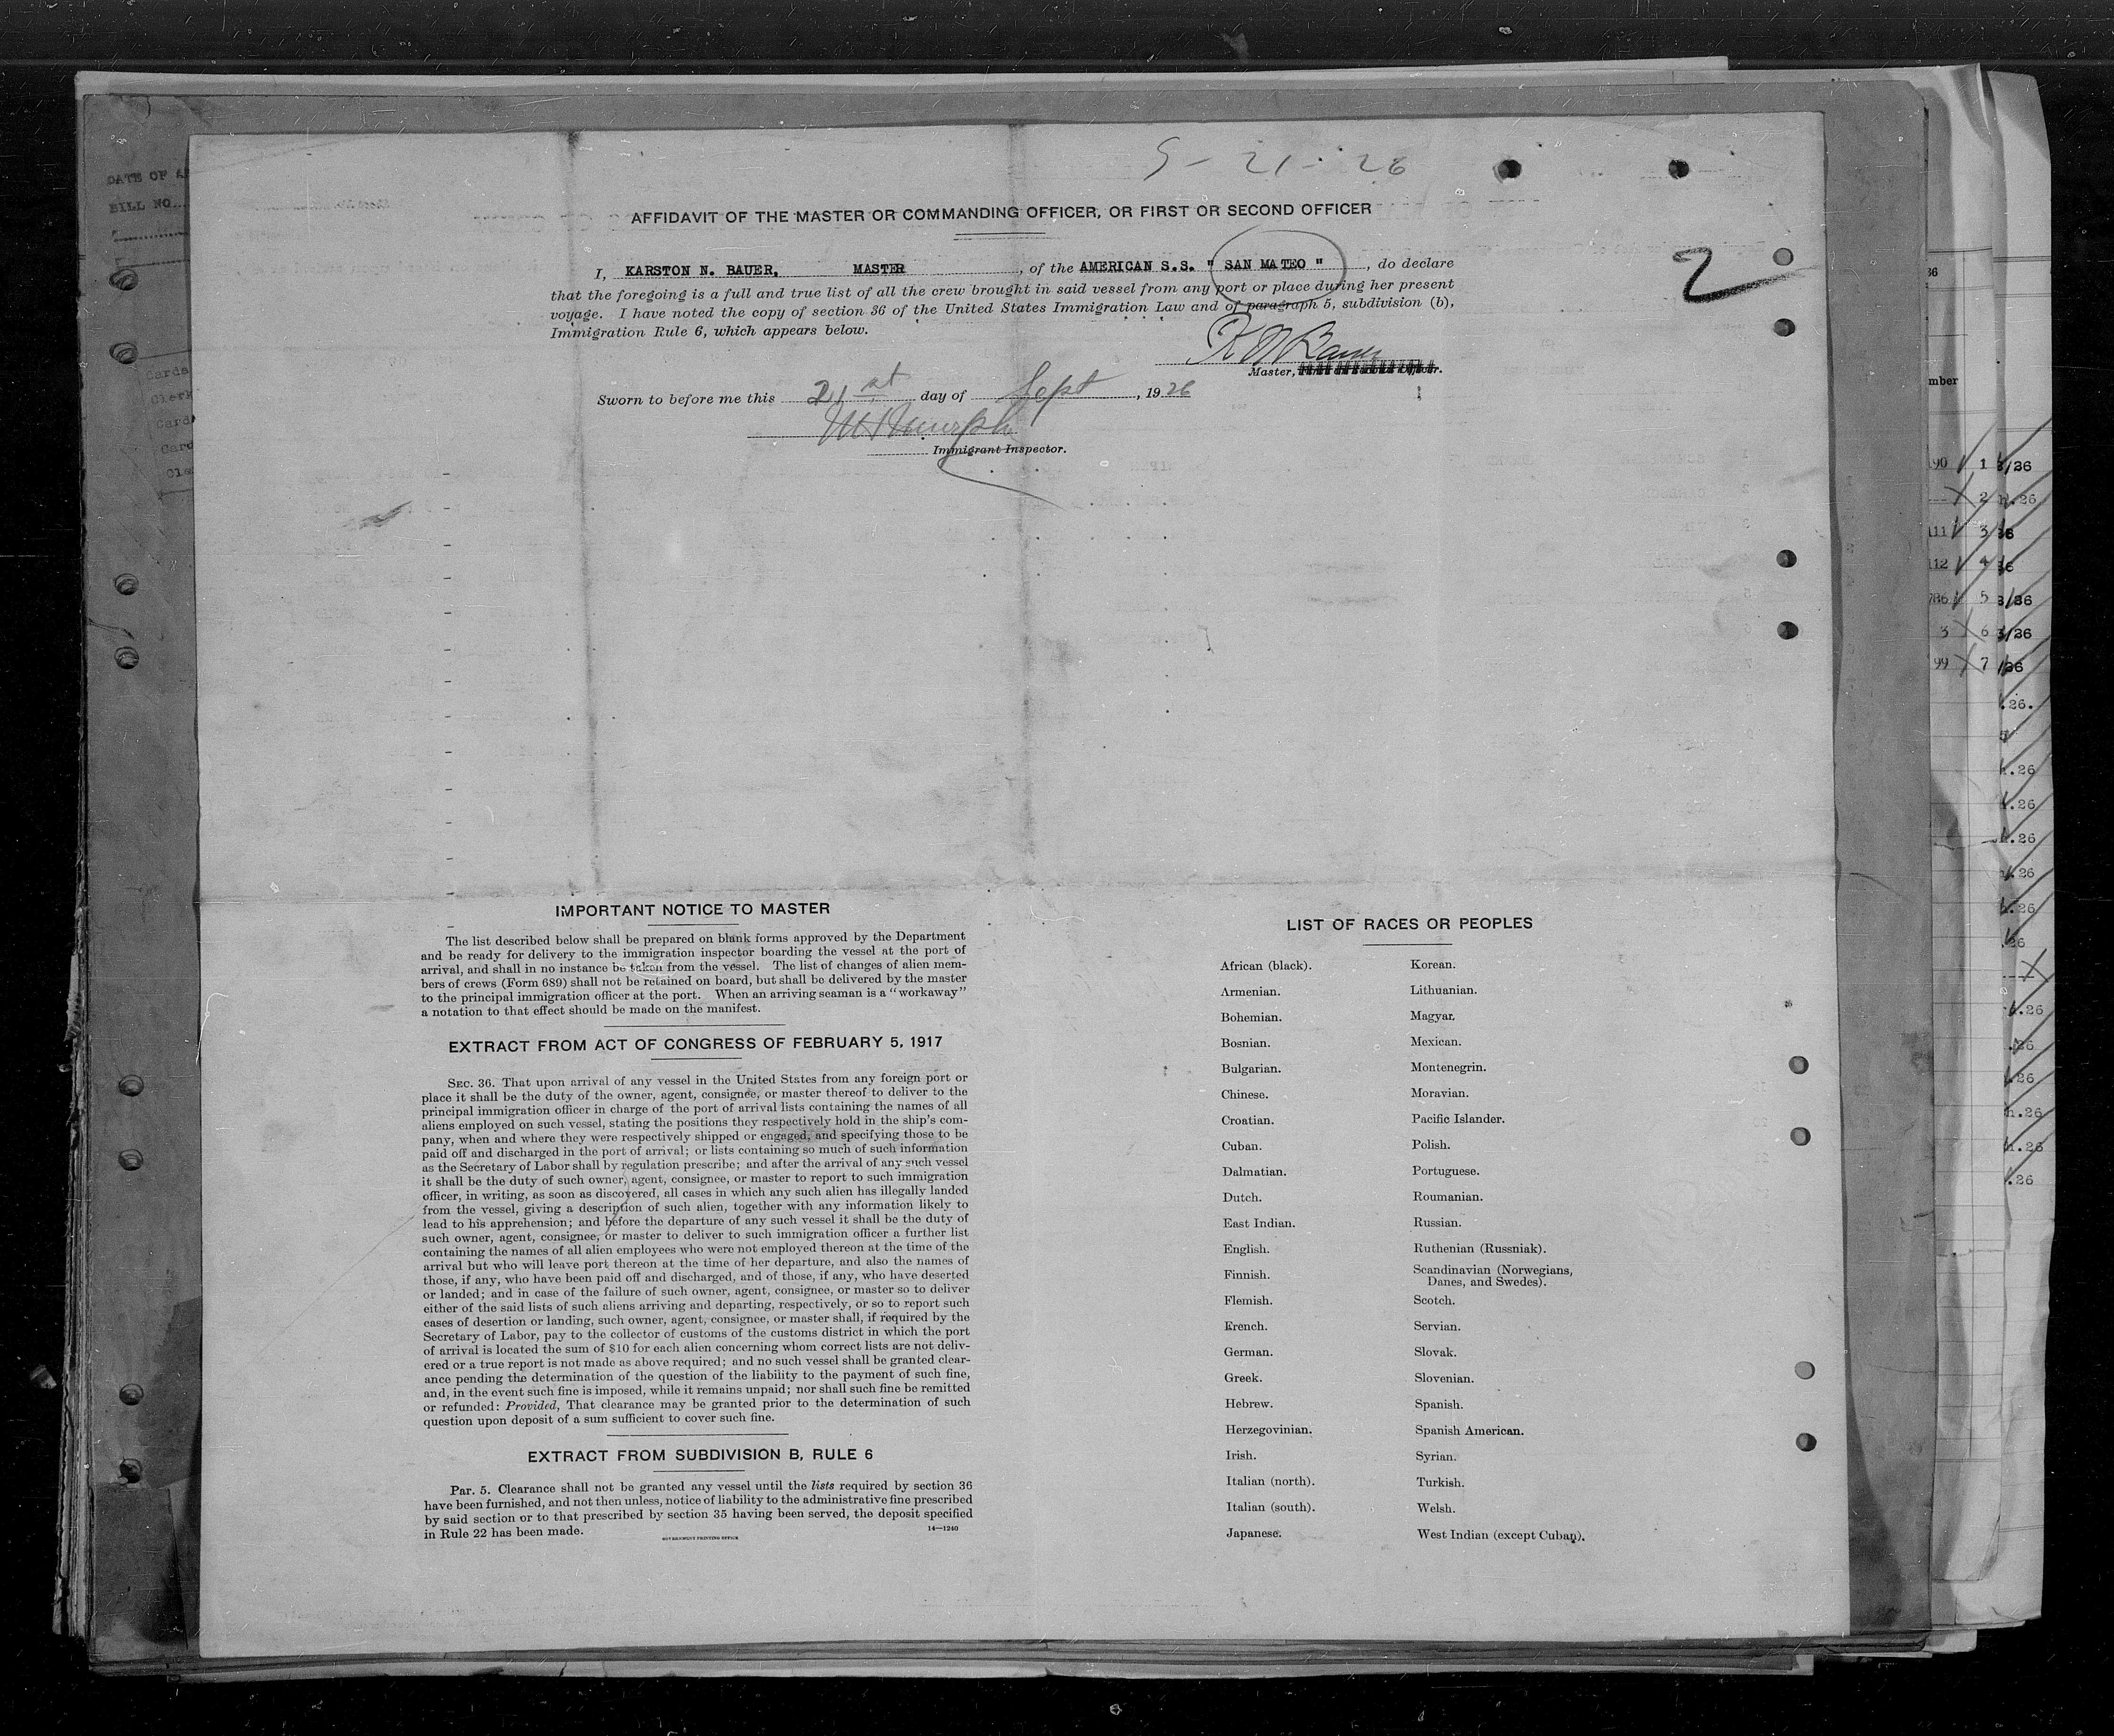 9-21-26
AFFIDAVIT OF THE MASTER OR COMMANDING OFFICER, OR FIRST OR SECOND OFFICER
I, KARSTON N. BAUER, MASTER, of the AMERICAN S.S. " SAN MATEO ", do declare
that the foregoing is a full and true list of all the crew brought in said vessel from any port or place during her present
voyage. I have noted the copy of section 36 of the United States Immigration Law and of paragraph 5, subdivision (b),
Immigration Rule 6, which appears below.
2
K N Bauer
Master,
Sworn to before me this 21st day of Sept, 1926
Immigrant Inspector.
IMPORTANT NOTICE TO MASTER
The list described below shall be prepared on blank forms approved by the Department
and be ready for delivery to the immigration inspector boarding the vessel at the port of
arrival, and shall in no instance be taken from the vessel. The list of changes of alien mem-
bers of crews (Form 689) shall not be retained on board, but shall be delivered by the master
to the principal immigration officer at the port. When an arriving seaman is a "workaway"
a notation to that effect should be made on the manifest.
EXTRACT FROM ACT OF CONGRESS OF FEBRUARY 5, 1917
SEC. 36. That upon arrival of any vessel in the United States from any foreign port or
place it shall be the duty of the owner, agent, consignee, or master thereof to deliver to the
principal immigration officer in charge of the port of arrival lists containing the names of all
aliens employed on such vessel, stating the positions they respectively hold in the ship's com-
pany, when and where they were respectively shipped or engaged, and specifying those to be
paid off and discharged in the port of arrival; or lists containing so much of such information
as the Secretary of Labor shall by regulation prescribe; and after the arrival of any such vessel
it shall be the duty of such owner, agent, consignee, or master to report to such immigration
officer, in writing, as soon as discovered, all cases in which any such alien has illegally landed
from the vessel, giving a description of such alien, together with any information likely to
lead to his apprehension; and before the departure of any such vessel it shall be the duty of
such owner, agent, consignee, or master to deliver to such immigration officer a further list
containing the names of all alien employees who were not employed thereon at the time of the
arrival but who will leave port thereon at the time of her departure, and also the names of
those, if any, who have been paid off and discharged, and of those, if any, who have deserted
or landed; and in case of the failure of such owner, agent, consignee, or master so to deliver
either of the said lists of such aliens arriving and departing, respectively, or so to report such
cases of desertion or landing, such owner, agent, consignee, or master shall, if required by the
Secretary of Labor, pay to the collector of customs of the customs district in which the port
of arrival is located the sum of $10 for each alien concerning whom correct lists are not deliv-
ered or a true report is not made as above required; and no such vessel shall be granted clear-
ance pending the determination of the question of the liability to the payment of such fine,
and, in the event such fine is imposed, while it remains unpaid; nor shall such fine be remitted
or refunded: Provided, That clearance may be granted prior to the determination of such
question upon deposit of a sum sufficient to cover such fine.
EXTRACT FROM SUBDIVISION B, RULE 6
Par. 5. Clearance shall not be granted any vessel until the lists required by section 36
have been furnished, and not then unless, notice of liability to the administrative fine prescribed
by said section or to that prescribed by section 35 having been served, the deposit specified
in Rule 22 has been made.
14—1240
GOVERNMENT PRINTING OFFICE
LIST OF RACES OR PEOPLES
African (black).
Armenian.
Bohemian.
Bosnian.
Bulgarian.
Chinese.
Croatian.
Cuban.
Dalmatian.
Dutch.
East Indian.
English.
Finnish.
Flemish.
French.
German.
Greek.
Hebrew.
Herzegovinian.
Irish.
Italian (north).
Italian (south).
Japanese.
Korean.
Lithuanian.
Magyar.
Mexican.
Montenegrin.
Moravian.
Pacific Islander.
Polish.
Portuguese.
Roumanian.
Russian.
Ruthenian (Russniak).
Scandinavian (Norwegians,
Danes, and Swedes).
Scotch.
Servian.
Slovak.
Slovenian.
Spanish.
Spanish American.
Syrian.
Turkish.
Welsh.
West Indian (except Cuban).